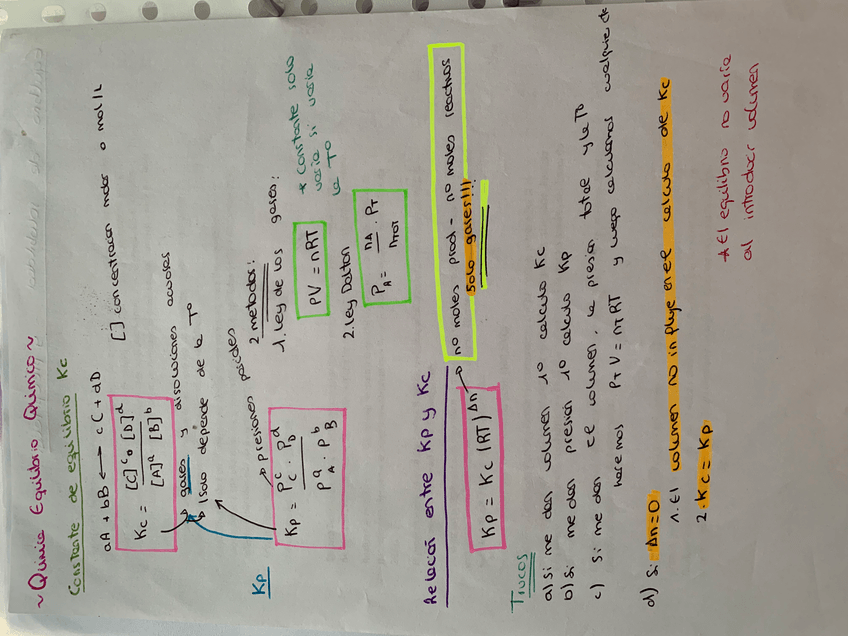 ~ Química Equilibrio Químico ~
Constante de equilibrio Kc
aA + bB ⟷ cC + dD
[ ] concentracion molar o mol/L
Kc = [C]^c · [D]^d / [A]^a [B]^b
→ gases y disoluciones acuosas
→ Solo depende de la Tº
Kp
→ presiones parciales
Kp = P_C^c · P_D^d / P_A^a · P_B^b
2 metodos:
1. Ley de los gases:
PV = nRT
* Constante solo
varia si varia
la Tº
2. Ley Dalton
P_A = n_A / n_TOT · P_T
Relacion entre Kp y Kc
Kp = Kc (RT)^Δn
→ nº moles prod - nº moles reactivos
Solo gases!!!
Trucos
a) Si me dan volumen 1º calculo Kc
b) Si me dan presion 1º calculo Kp
c) Si me dan el volumen, la presion total y la Tº
hacemos P_T V = n_T RT y luego calculamos cualquie
d) Si Δn = 0
1. El volumen no influye en el calculo de Kc
2. Kc = Kp
* El equilibrio no varia
al introducir volumen